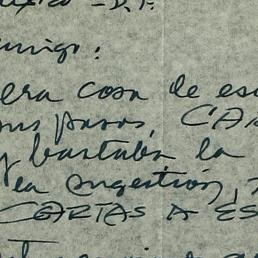 éxico - D.F.
amigo:
era cosa de es
sus pasos, CAR
y bastaba la
la sugestión,
CARTAS A ES